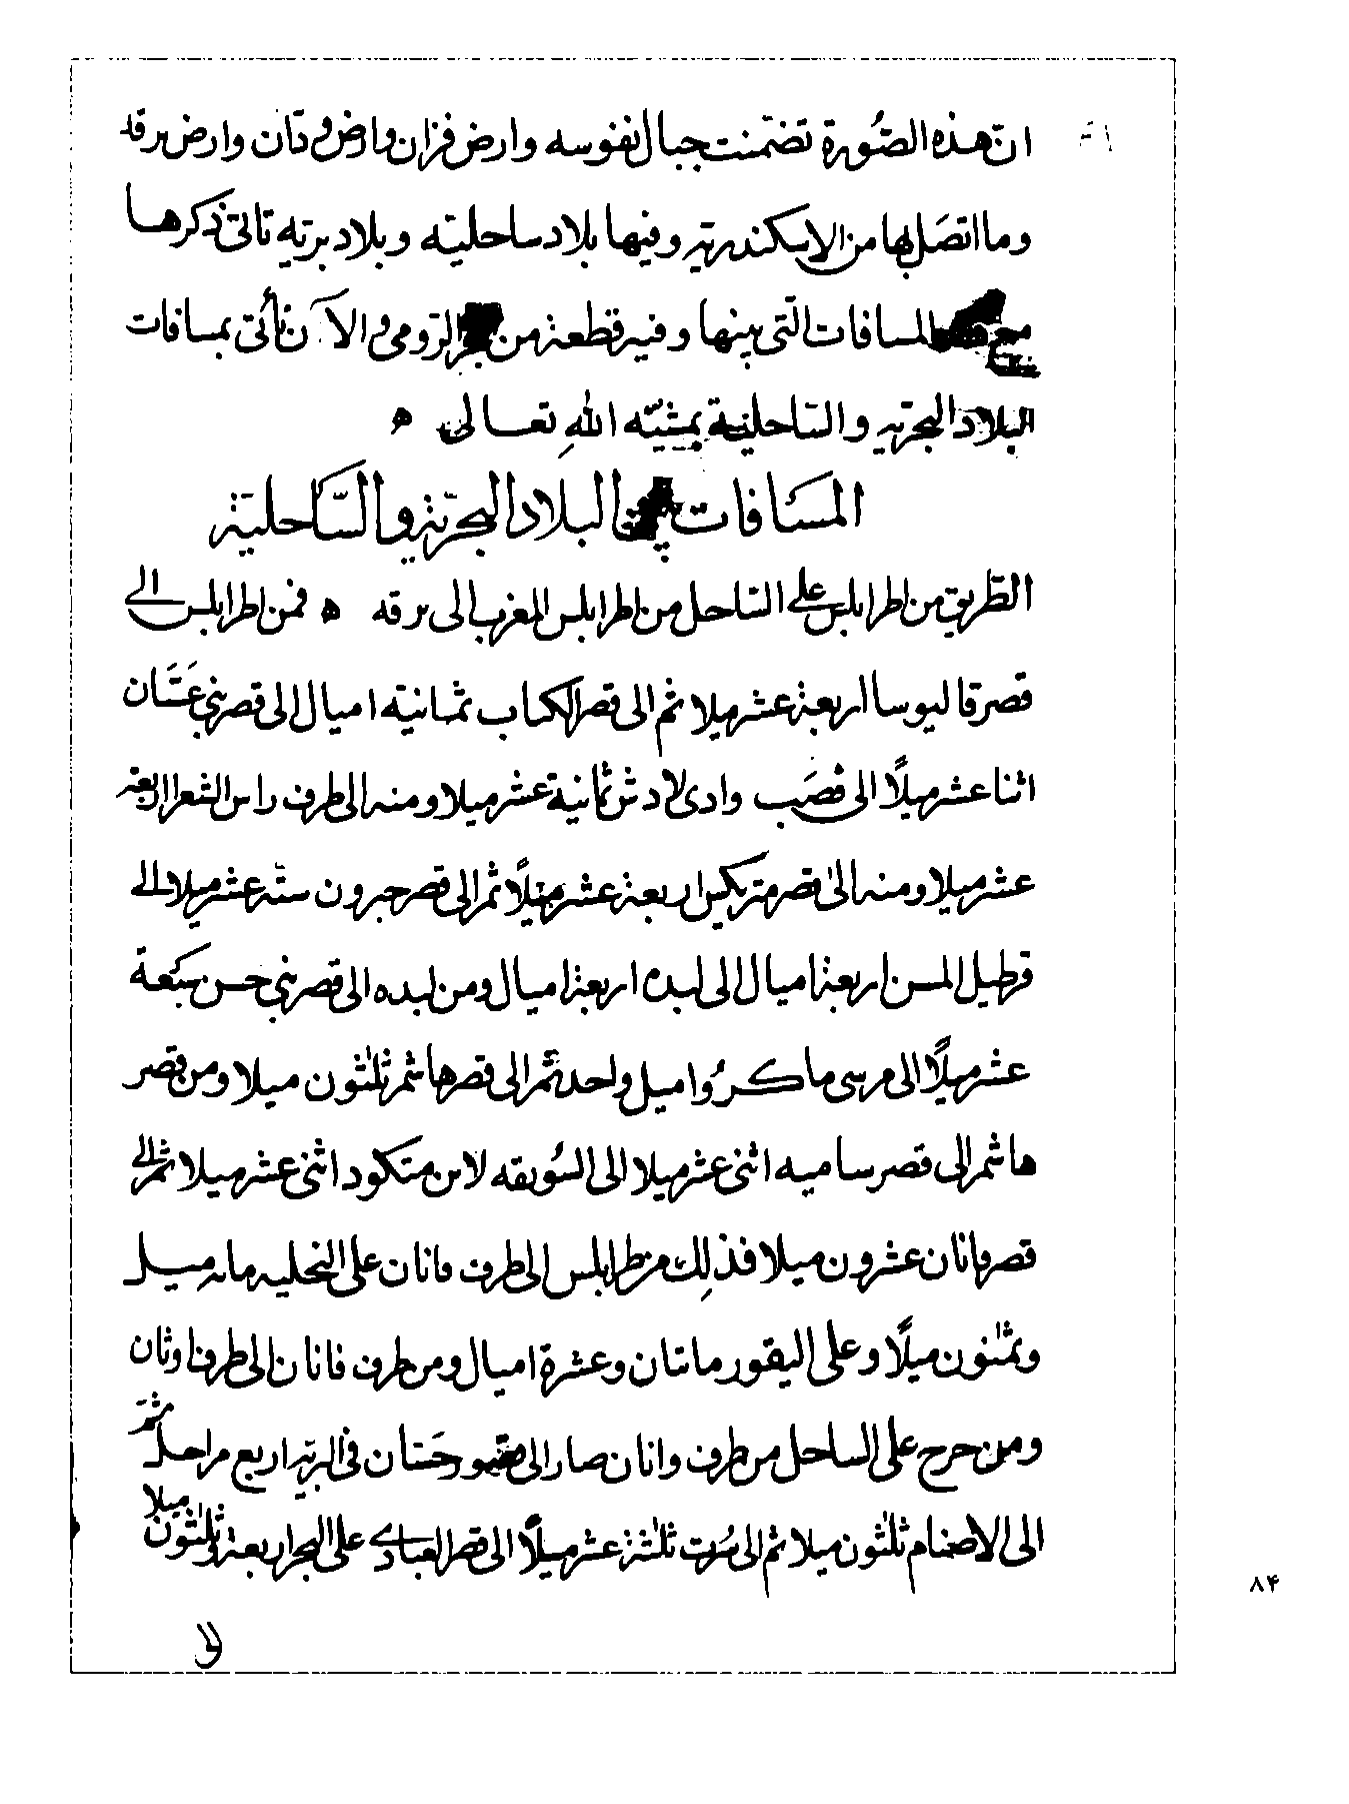 انّ هذه الصّورة تضمّنت جبال نفوسه وارض فزان وارض ودّان وارض برقه
وما اتصَل بها من الاسكندريه وفيها بلاد ساحليّه وبلاد بريّه تاتى ذكرها
مع المسافات الّتى بينها وفيه قطعة من البحر الرّومى والآن نأتى بمسافات
البلاد البحريه والسّاحلية بمشيّه اللهِ تعالى ه
المسَافات بين البلاد البحريّة والسّاحلية
الطّريق من اطرابلس على السّاحل من اطرابلس المغرب الى برقه ه فمن اطرابلس الى
قصر قاليوسا اربعة عشر ميلا ثم الى قصر الكتاب ثمانيّه اميال الى قصر بنى غسّان
اثنا عشر ميلًا الى قصَب وادى لادس ثمانية عشر ميلا ومنه الى طرف راس الشعرا اربعة
عشر ميلا ومنه الى قصر متريكس اربعة عشر ميلًا ثم الى قصر جبرون ستّه عشر ميلا الى
قرطيل المسن اربعة اميال الى لبده اربعة اميال ومن لبده الى قصر بنى حسن سبَعة
عشر ميلًا الى مرسى ماكرُوا ميل واحد ثمّ الى قصر هاشم ثلثون ميلا ومن قصر
هاشم الى قصر ساميه اثنى عشر ميلا الى السُويقه لابن متكود اثنى عشر ميلا ثم الى
قصر فانان عشرون ميلا فذلِك من طرابلس الى طرف فانان على النحليه مايه ميل
وثمٰنون ميلًا وعلى اليقور مائتان وعشرة اميال ومن طرف فانان الى طرفاوثان
ومن خرج على الساحل من طرف وانان صار الى قصور حَسّان فى البريّه اربع مراحل ثمّ
الى الاصنام ثلٰثون ميلا ثم الى سُرت ثلٰثة عشر ميلًا الى قصر العبادى على البحر اربعة وثلٰثون ميلا
الى
۸۴